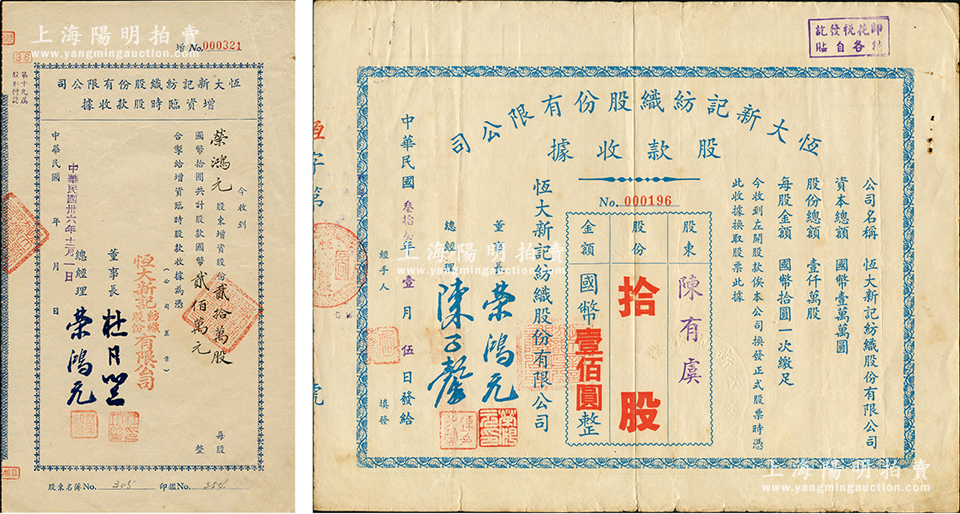 上海陽明拍賣
www.yangmingauction.com
增 No.000321
36
恆大新記紡織股份有限公司
增資臨時股款收據
今收到
榮鴻元 股東增資股份貳拾萬股 每股
國幣拾圓共計股款國幣貳佰萬元 整
合掣給增資臨時股款收據為憑
(公司蓋章)
恆大新記紡織股份有限公司
董事長 杜月笙
總經理 榮鴻元
中華民國 年 月 日
中華民國卅六年十二月一日
股東名簿No. 305 印鑑No. 254
上海陽明拍賣
www.yangmingauction.com
印花稅發訖
各自貼
恆大新記紡織股份有限公司
股款收據
No. 000196
公司名稱 恆大新記紡織股份有限公司
資本總額 國幣壹萬萬圓
股份總額 壹仟萬股
每股金額 國幣拾圓一次繳足
今收到左開股款俟本公司換發正式股票時憑
此收據換取股票此據
股東 陳有虞
股份 拾股
金額 國幣壹佰圓整
恆大新記紡織股份有限公司
董事長 榮鴻元
總經理 陳子馨
中華民國 年壹月伍日發給
經手人 填發
恆字第 號
上海陽明拍賣
www.yangmingauction.com
上海陽明拍賣
www.yangmingauction.com